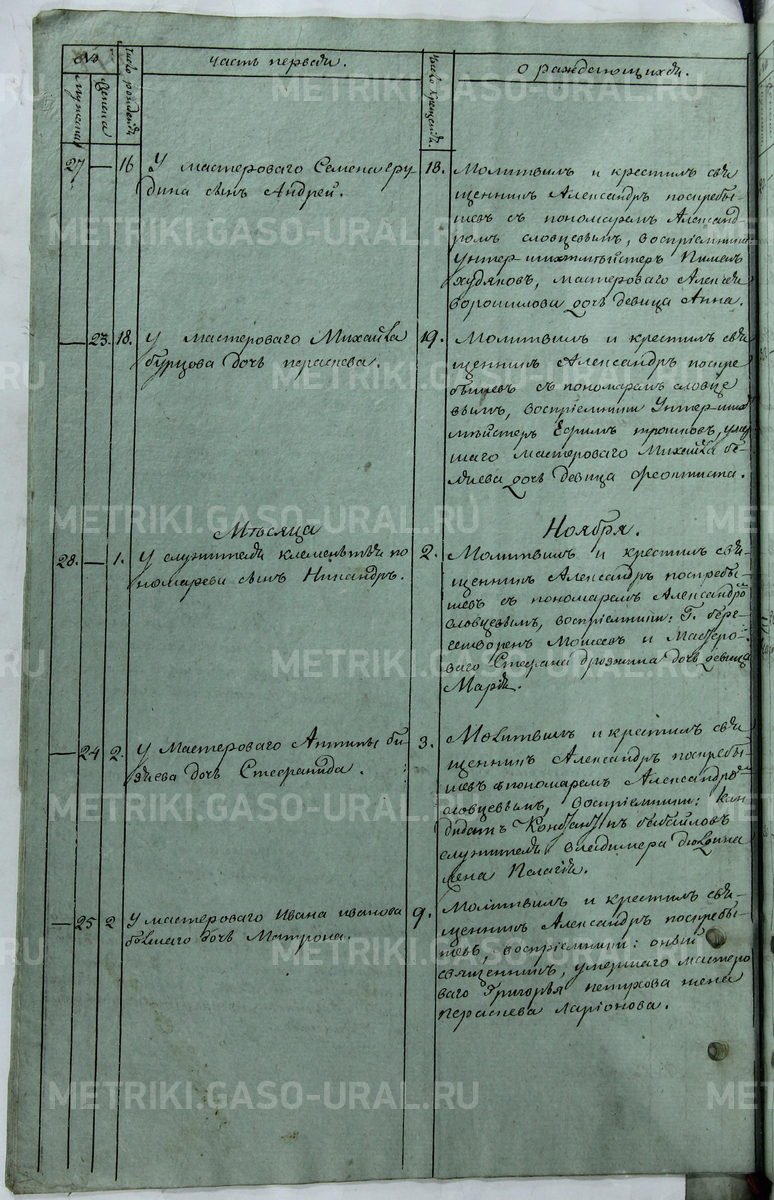 №
часть первая.
о раждающихся.
мужеска
женска
число рождения
число крещения
27
—
16
У мастероваго Семена
дина сын Андрей.
18.
Молитвил и крестил свя
щенник Александр поскребы
шев с пономарем Александ
ром словцевым, восприемники:
Унтер шихтмейстер Пимен
худяков, мастероваго Алексея
ворошилова дочь девица Анна.
—
23.
18.
У мастероваго Михайла
бурцова дочь параскева.
19.
Молитвил и крестил свя
щенник Александр поскре
бышев с пономарем словце
вым, восприемники Унтер шихт
мейстер Ефим трошков, умер
шаго мастероваго Михайла бе
ляева дочь девица феоктиста.
Месяца
Ноября.
28.
—
1.
У служителя клементия по
номарева сын Никандр.
2.
Молитвил и крестил свя
щенник Александр поскребы
шев с пономарем Александром
словцевым, восприемники: Г. бере
Моисеев и Мастеро
ваго Стефана дрожжина дочь девица
Мария.
—
24
2.
У Мастероваго Антипы би
яева дочь Стефанида.
3.
Молитвил и крестил свя
щенник Александр поскребы
шев с пономарем Александром
словцевым, восприемники: кан
дидат Константин
служителя владимера
жена Пелагия.
—
25
2
У мастероваго Ивана иванова
большаго дочь Матрона.
9.
Молитвил и крестил свя
щенник Александр поскребы
шев, восприемники: оный
священник, умершаго мастеро
ваго Григорья петухова жена
Параскева Ларионова.
METRIKI.GASO-URAL.RU